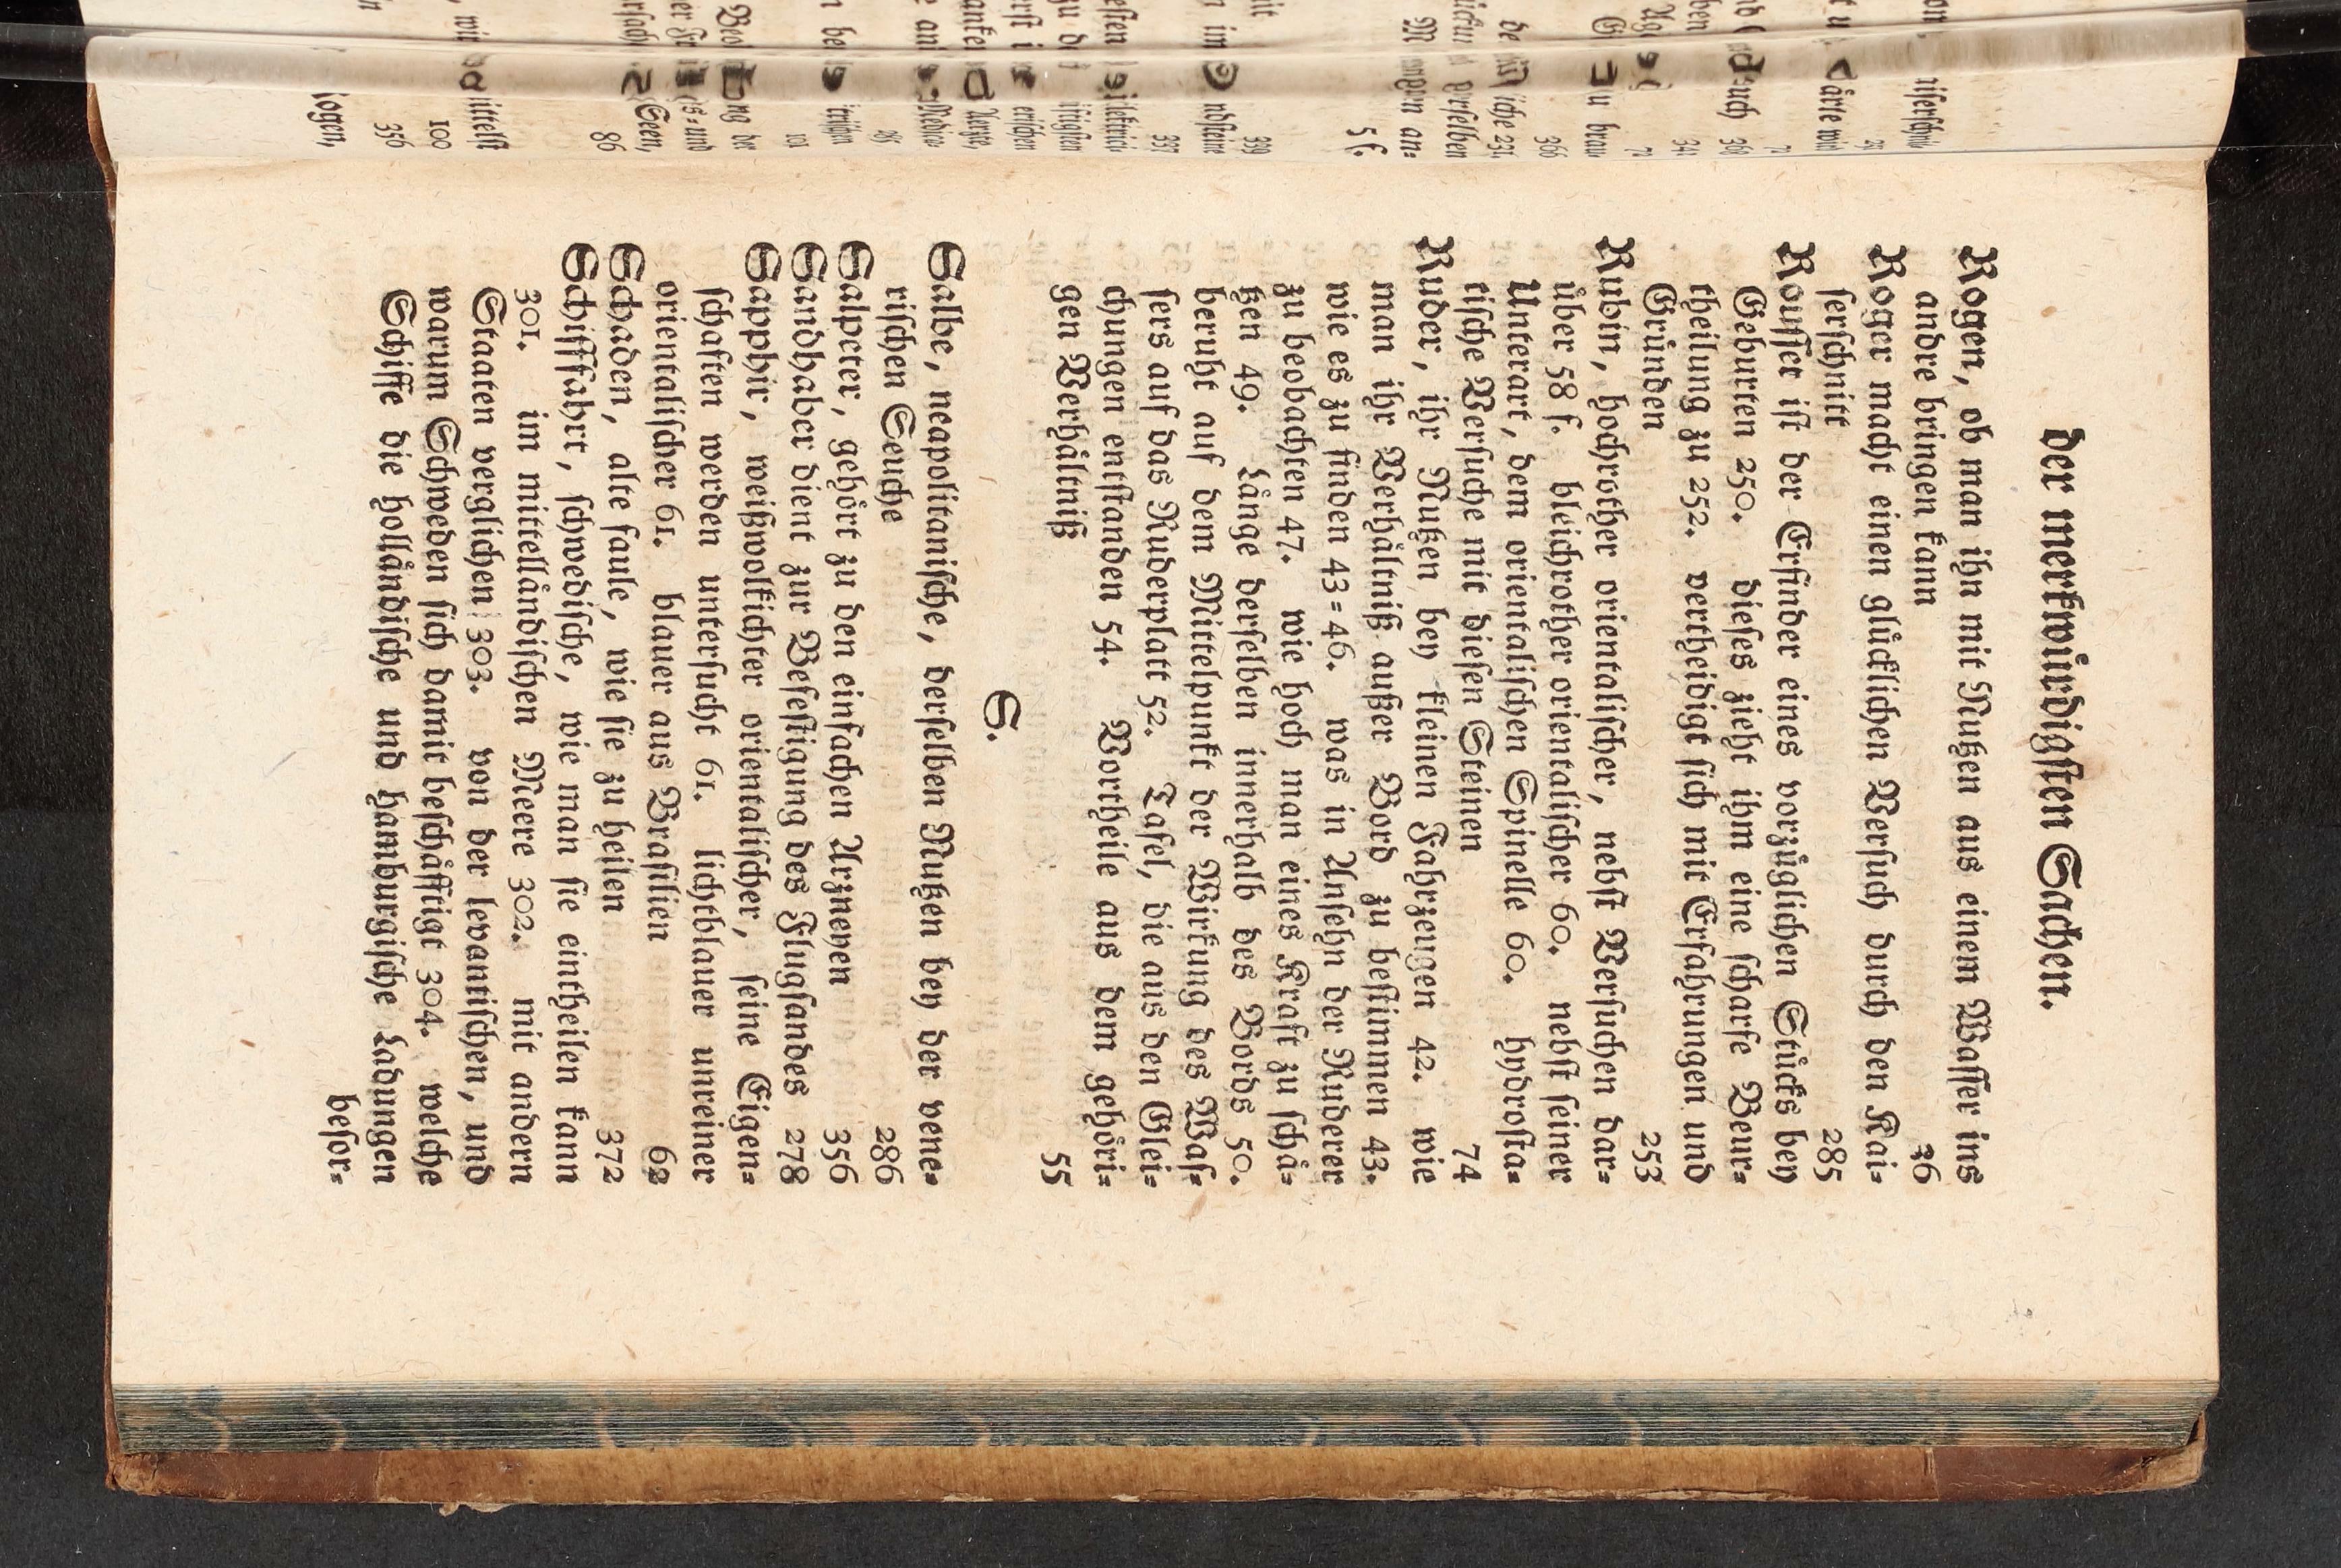 der merkwürdigſten Sachen.
Rogen, ob man ihn mit Nutzen aus einem Waſſer ins
andre bringen kann 36
Roger macht einen glücklichen Verſuch durch den Kai-
ſerſchnitt 285
Rouſſet iſt der Erfinder eines vorzüglichen Stücks bey
Geburten 250. dieſes zieht ihm eine ſcharfe Beur-
theilung zu 252. vertheidigt ſich mit Erfahrungen und
Gründen 253
Rubin, hochrother orientaliſcher, nebſt Verſuchen dar-
über 58 f. bleichrother orientaliſcher 60. nebſt ſeiner
Unterart, dem orientaliſchen Spinelle 60. hydroſta-
tiſche Verſuche mit dieſen Steinen 74
Ruder, ihr Nutzen bey kleinen Fahrzeugen 42. wie
man ihr Verhältniß außer Bord zu beſtimmen 43.
wie es zu finden 43-46. was in Anſehn der Ruderer
zu beobachten 47. wie hoch man eines Kraft zu ſchä-
tzen 49. Länge derſelben innerhalb des Bords 50.
beruht auf dem Mittelpunkt der Wirkung des Waſ-
ſers auf das Ruderplatt 52. Tafel, die aus den Glei-
chungen entſtanden 54. Vortheile aus dem gehöri-
gen Verhältniß 55
S.
Salbe, neapolitaniſche, derſelben Nutzen bey der vene-
riſchen Seuche 286
Salpeter, gehört zu den einfachen Arzneyen 356
Sandhaber dient zur Befeſtigung des Flugſandes 278
Sapphir, weißwolkichter orientaliſcher, ſeine Eigen-
ſchaften werden unterſucht 61. lichtblauer unreiner
orientaliſcher 61. blauer aus Braſilien 62
Schaden, alte faule, wie ſie zu heilen 372
Schifffahrt, ſchwediſche, wie man ſie eintheilen kann
301. im mittelländiſchen Meere 302. mit andern
Staaten verglichen 303. von der levantiſchen, und
warum Schweden ſich damit beſchäfftigt 304. welche
Schiffe die holländiſche und hamburgiſche Ladungen
beſor-